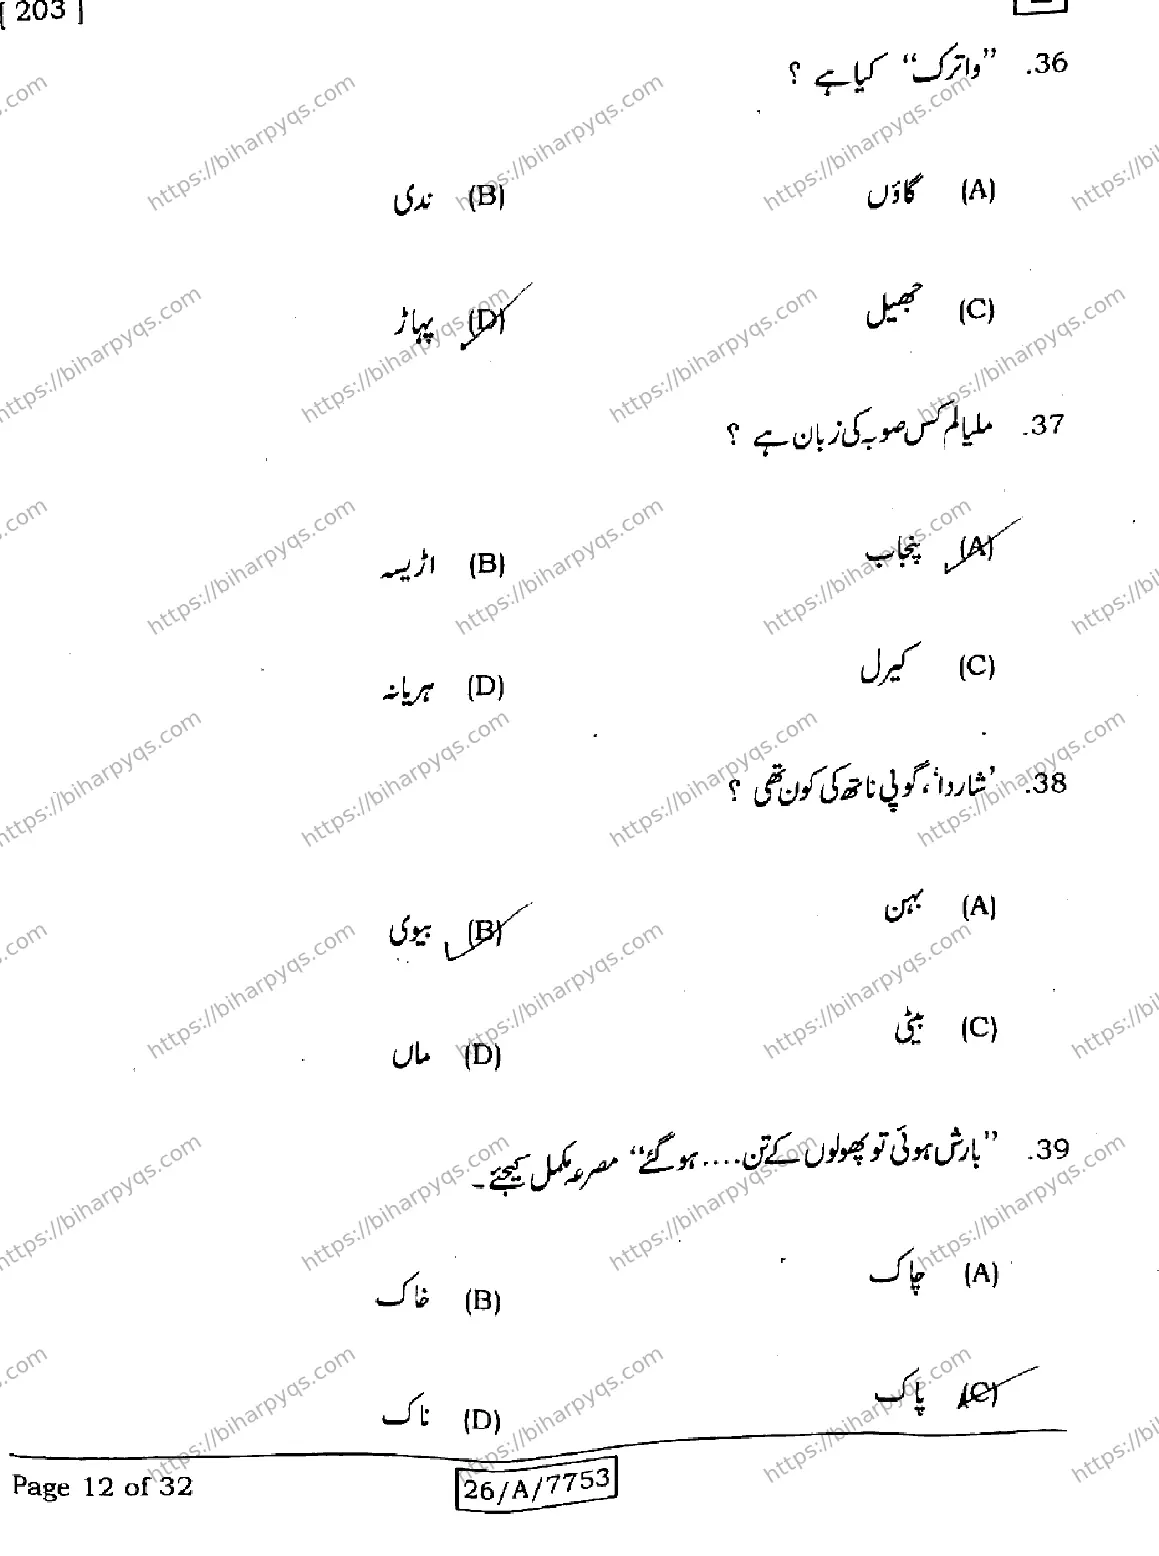 [ 203 ]
36. ”واترک“ کیا ہے ؟
(A) گاؤں (B) ندی
(C) جھیل (D) پہاڑ
37. ملیالم کس صوبہ کی زبان ہے ؟
(A) پنجاب (B) اڑیسہ
(C) کیرل (D) ہریانہ
38. ’شاردا‘، گوپی ناتھ کی کون تھی ؟
(A) بہن (B) بیوی
(C) بیٹی (D) ماں
39. ”بارش ہوئی تو پھولوں کے تن .... ہو گئے“ مصرعہ مکمل کیجئے۔
(A) چاک (B) خاک
(C) پاک (D) ناک
Page 12 of 32
26/A/7753
https://biharpyqs.com